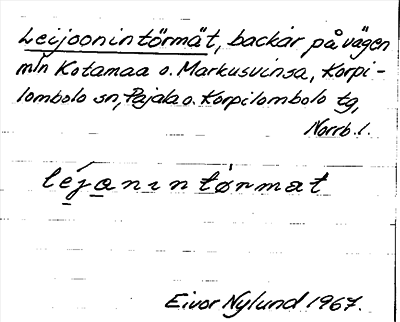 Leijoonintörmät, backar på vägen
mln Kotamaa o. Markusvinsa, Korpi-
lombolo sn, Pajala o. Korpilombolo tg,
Norrb. l.
léjanintørmat
Eivor Nylund 1967.